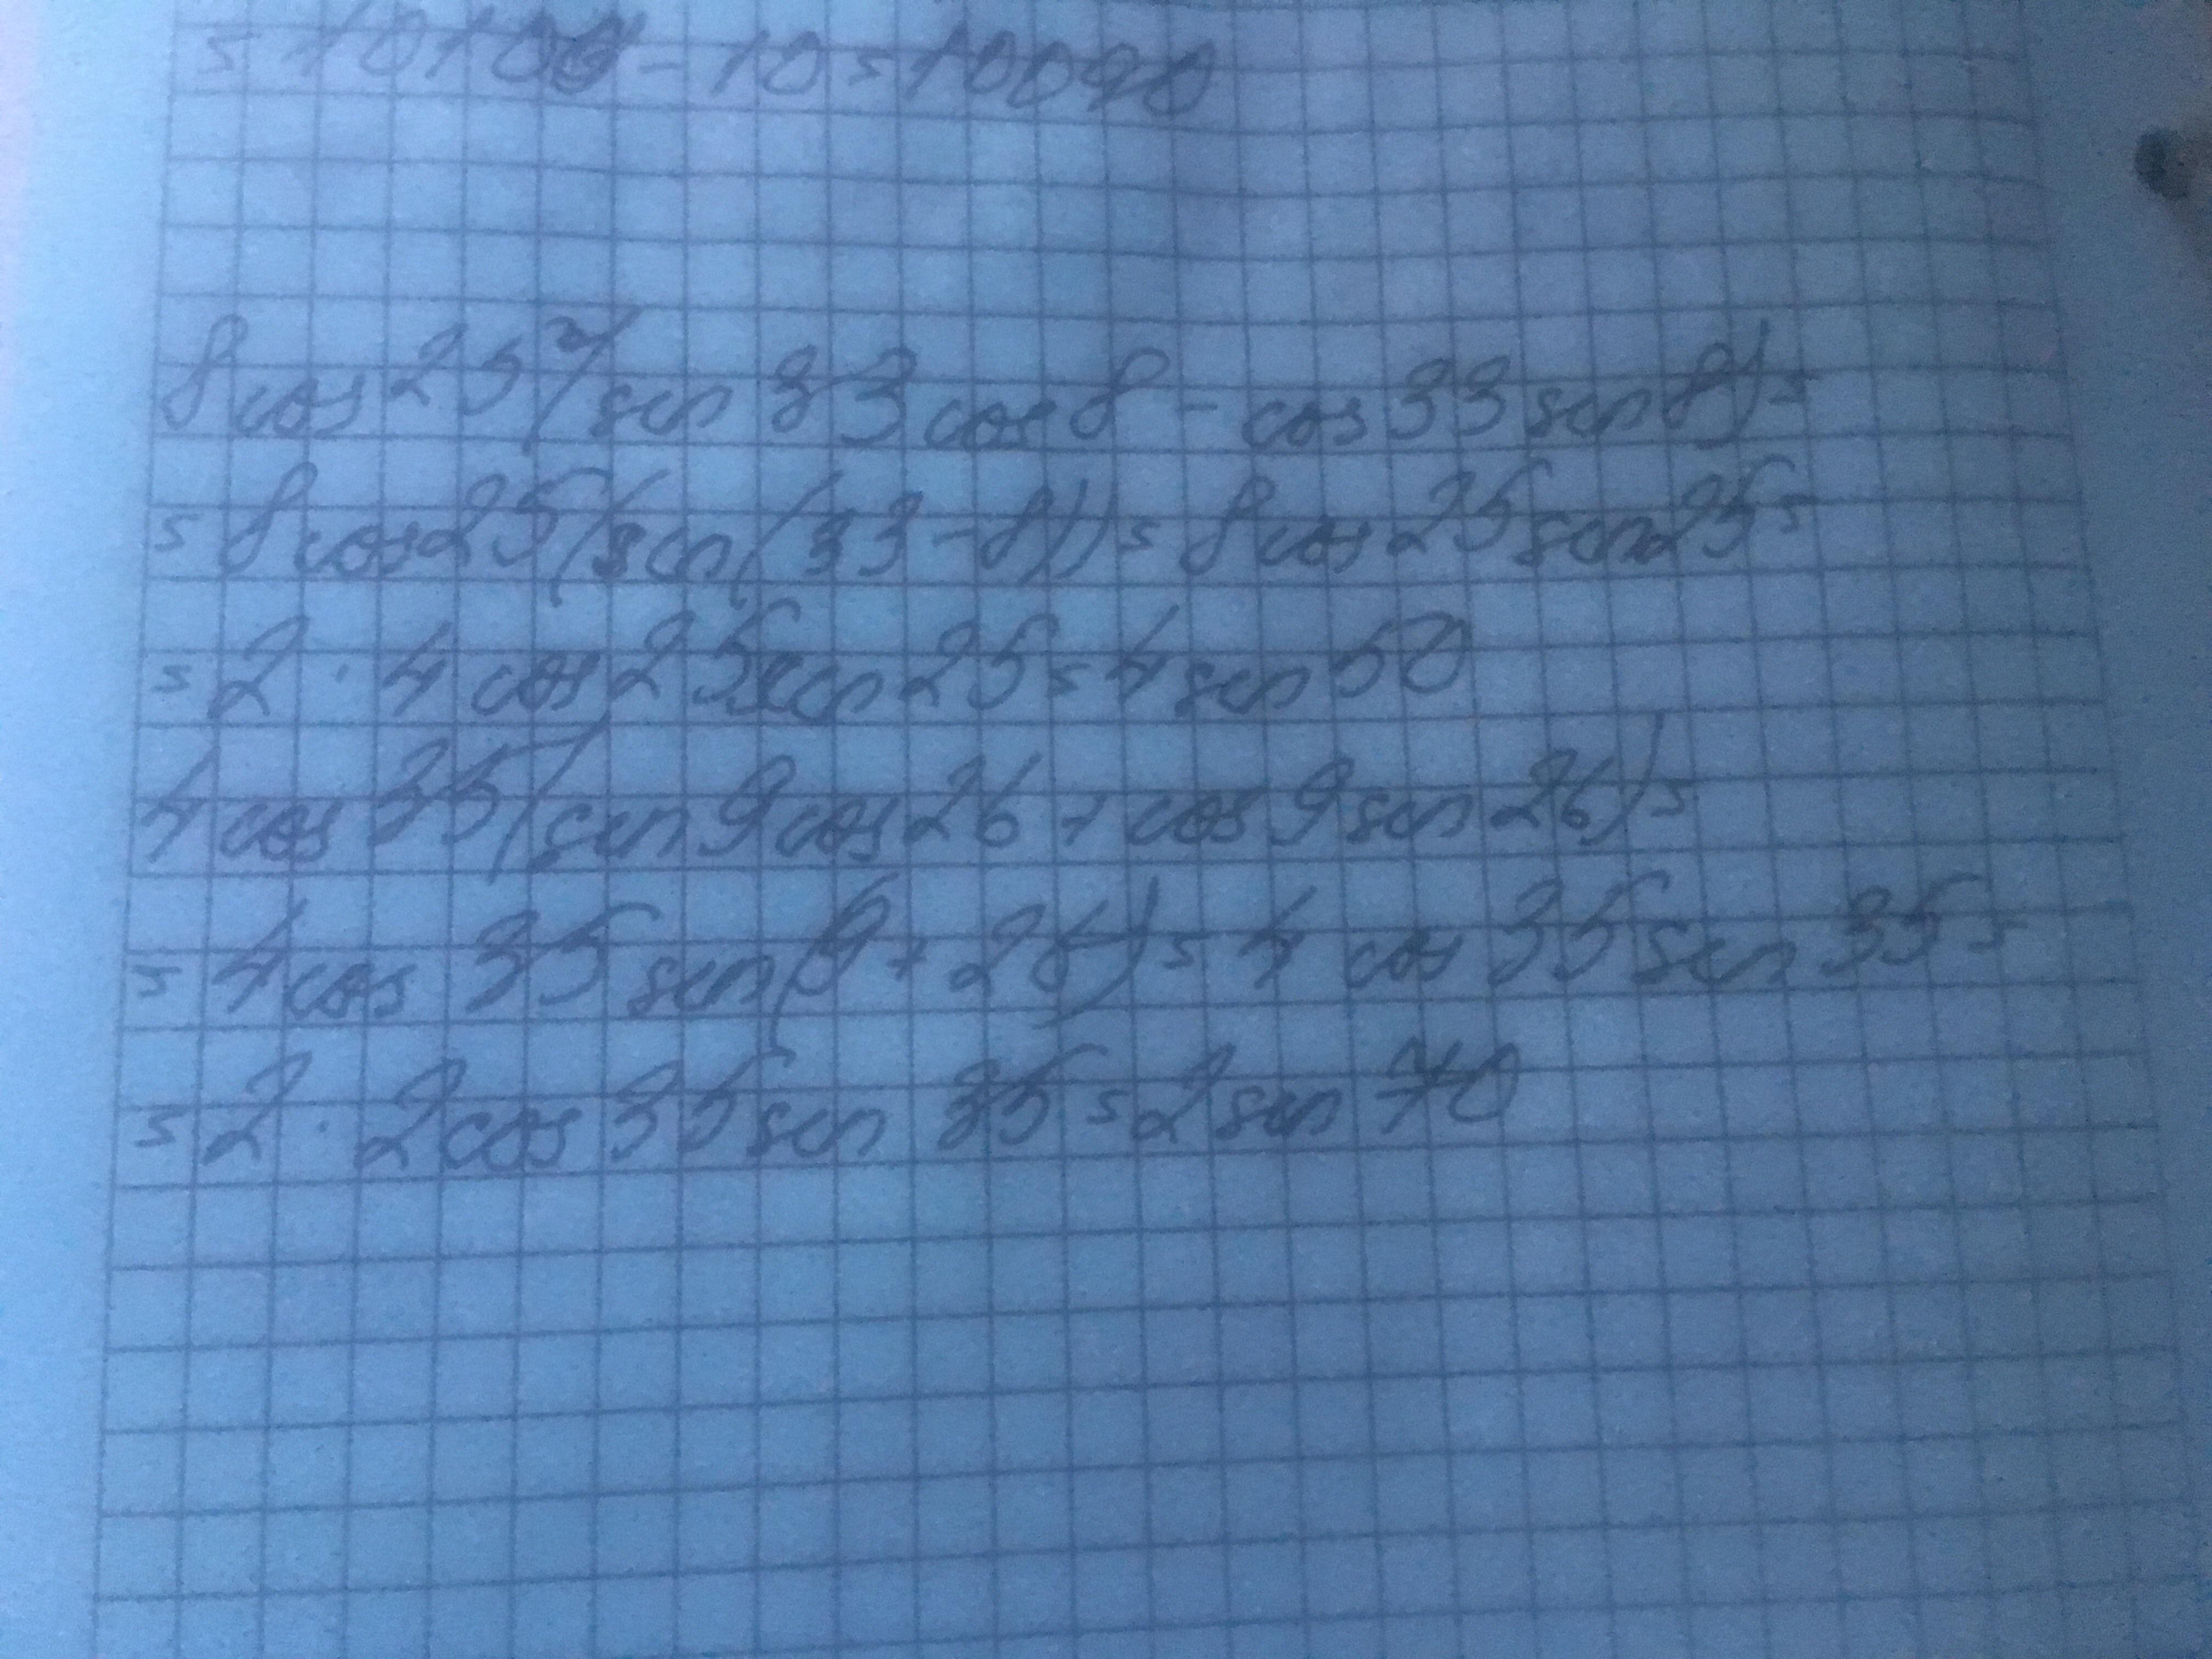 = 10100 - 10 = 10090
8cos25°(sin 33 cos 8 - cos 33 sin 8) =
= 8cos25(sin(33-8)) = 8cos25sin25 =
= 2 · 4 cos 25 sin 25 = 4 sin 50
4 cos 35(sin 9 cos 26 + cos 9 sin 26) =
= 4cos 35 sin(9 + 26) = 4 cos 35 sin 35 =
= 2 · 2cos 35 sin 35 = 2 sin 70